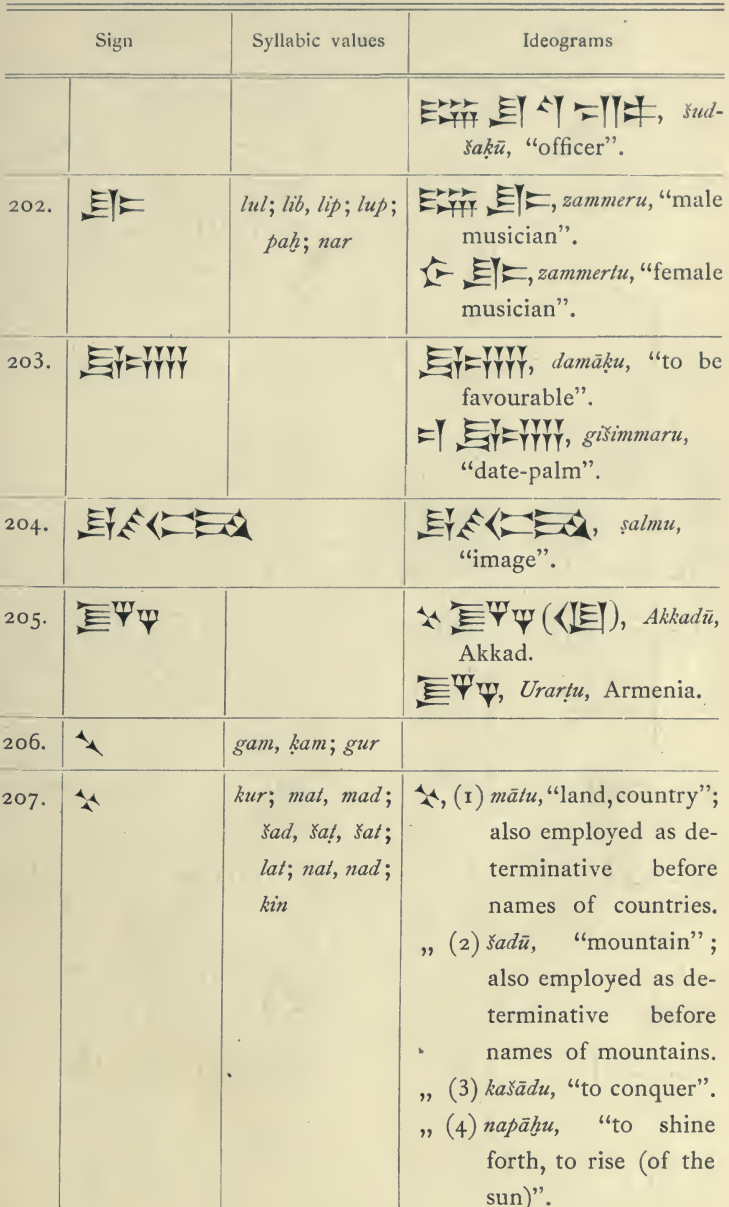 Sign Syllabic values Ideograms
šud-
šaḳū, “officer”.
202. 𒈜 lul; lib, lip; lup; 𒇽 𒈜, zammeru, “male
paḫ; nar musician”.
𒊩 𒈜, zammertu, “female
musician”.
203. 𒊷 𒊷, damāḳu, “to be
favourable”.
𒄑 𒊷, gišimmaru,
“date-palm”.
204. 𒀩 𒀩, ṣalmu,
“image”.
205. 𒌵 𒆳 𒌵 (𒆠), Akkadū,
Akkad.
𒌵, Urarṭu, Armenia.
206. 𒃵 gam, ḳam; gur
207. 𒆳 kur; mat, mad; 𒆳, (1) mātu, “land, country”;
šad, šaṭ, šat; also employed as de-
lat; nat, nad; terminative before
kin names of countries.
„ (2) šadū, “mountain”;
also employed as de-
terminative before
names of mountains.
„ (3) kašādu, “to conquer”.
„ (4) napāḫu, “to shine
forth, to rise (of the
sun)”.